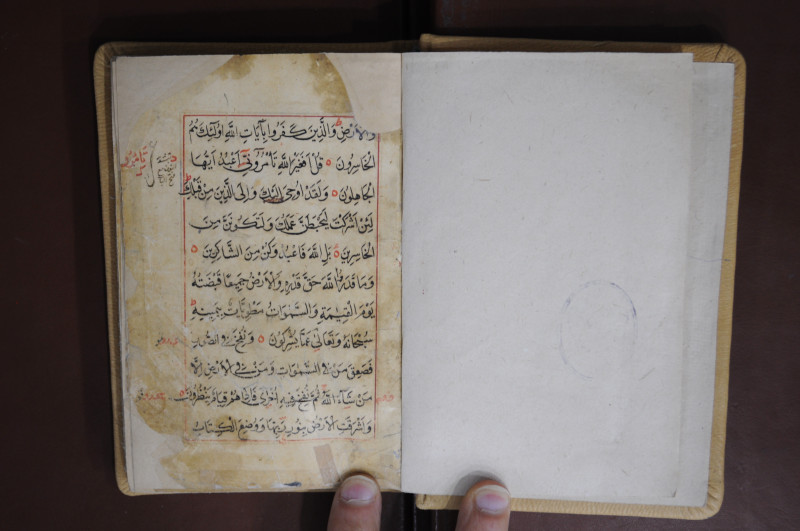 والارض والذين كفروا بآيات الله اولئك هم
الخاسرون قل افغير الله تأمروني اعبد ايها
الجاهلون ولقد اوحى اليك والى الذين من قبلك
لئن اشركت ليحبطن عملك ولتكونن من
الخاسرين بل الله فاعبد وكن من الشاكرين
وما قدروا الله حق قدره والارض جميعا قبضته
يوم القيمة والسموات مطويات بيمينه
سبحانه وتعالى عما يشركون ونفخ في الصور
فصعق من في السموات ومن في الارض الا
من شآء الله ثم نفخ فيه اخرى فاذا هم قيام ينظرون
واشرقت الارض بنور ربها ووضع الكتاب